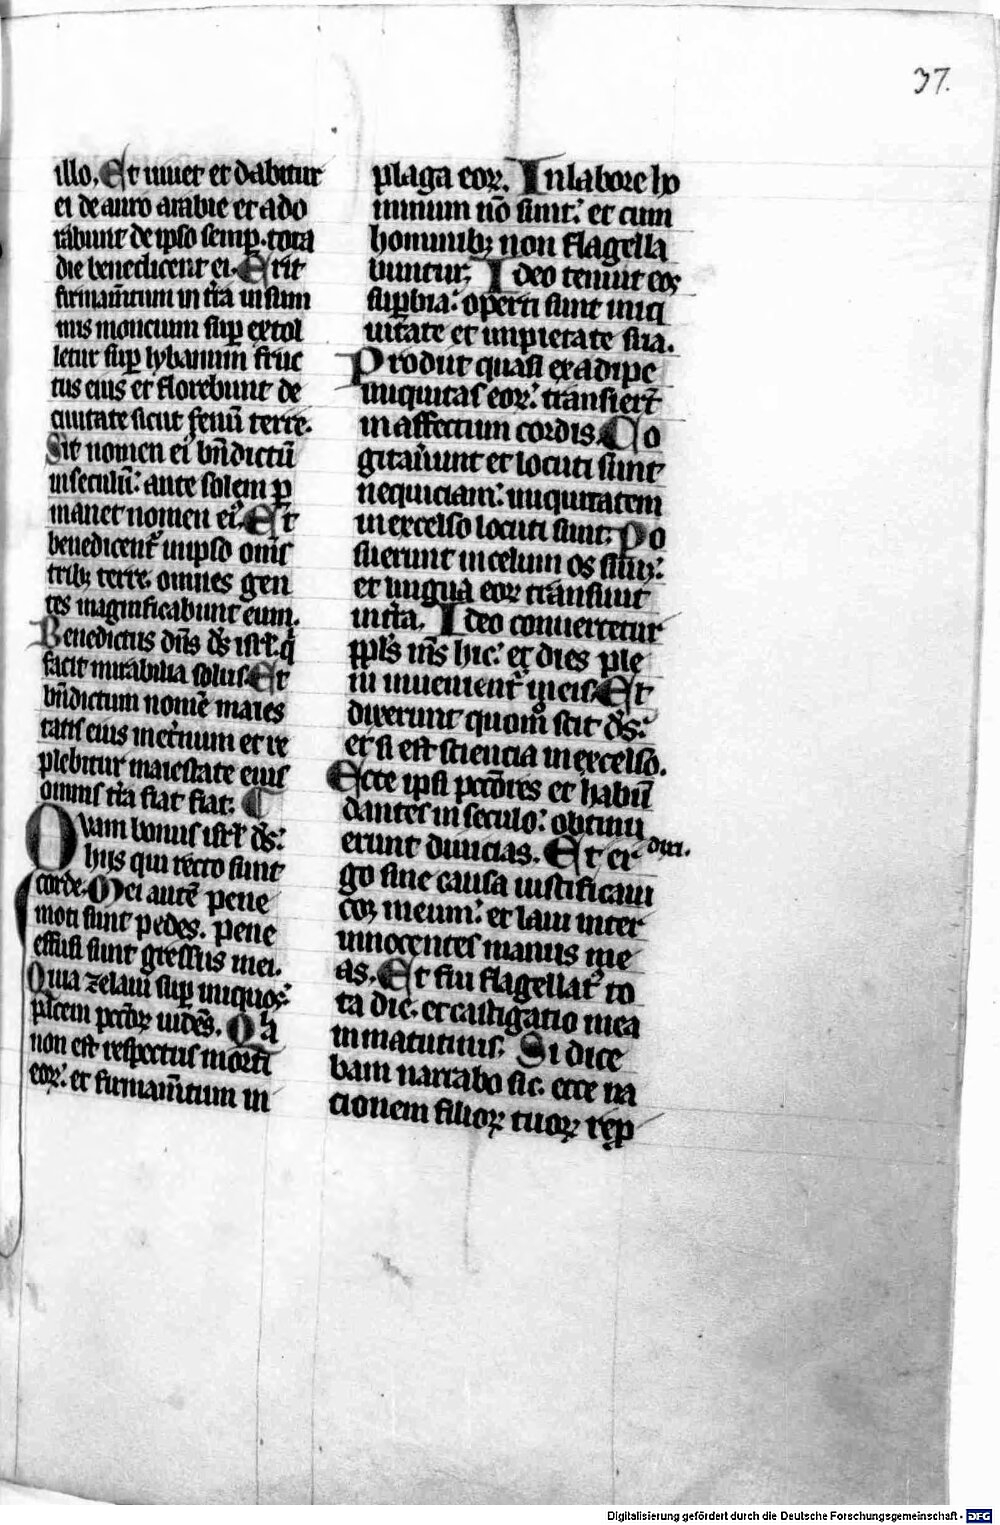 37.
illo. Et uiuet et dabitur
ei de auro arabie et ado
rabunt de ipso semꝑ. tota
die benedicent ei. Erit
firmam̄tum in t̄ra in sum
mis moncium suꝑ extol
letur suꝑ lybanum fruc
tus eius et florebunt de
ciuitate sicut fenū terre.
Sit nomen ei᷒ bn̄dictū
in seculū: ante solem ꝑ
manet nomen ei᷒. Et
benedicent᷑ in ipso om̄s
tribꝫ terre. omnes gen
tes magnificabunt eum.
Benedictus dn̄s ds̄ isrl̄. q̄
facit mirabilia solus. Et
bn̄dictum nomē maies
tatis eius in et̄num et re
plebitur maiestate eius
omnis t̄ra fiat fiat.
Quam bonus isrl̄ ds̄:
hiis qui recto sunt
corde. Mei autē pene
moti sunt pedes. pene
effusi sunt gressus mei.
Quia zelaui suꝑ iniquos:
pacem pctōꝝ uidēs. Qa
non est respectus morti
eoꝝ: et firmam̄tum in
plaga eoꝝ. In labore ho
minum nō sunt: et cum
hominibꝫ non flagella
buntur. Ideo tenuit eos
suꝑbia: operti sunt iniq
uitate et impietate sua.
Prodiit quasi ex adipe
iniquitas eoꝝ: transiert̄
in affectum cordis. Co
gitauunt et locuti sunt
nequiciam: iniquitatem
in excelso locuti sunt. Po
suerunt in celum os suum:
et lingua eoꝝ transiuit
in t̄ra. Ideo conuertetur
ppl̄s m̄s hic: et dies ple
ni inuenient᷑ in eis. Et
dixerunt quom̊ scit ds̄:
et si est sciencia in excelso.
Ecce ipsi pctōres et habū
dantes in seculo: obtinu
erunt diuicias. Et er dixi.
go sine causa iustificaui
cor meum: et laui inter
innocentes manus me
as. Et fui flagellat᷒ to
ta die. et castigatio mea
in matutinis. Si dice
bam narrabo sic. ecce na
cionem filioꝝ tuoꝝ rep
Digitalisierung gefördert durch die Deutsche Forschungsgemeinschaft - DFG